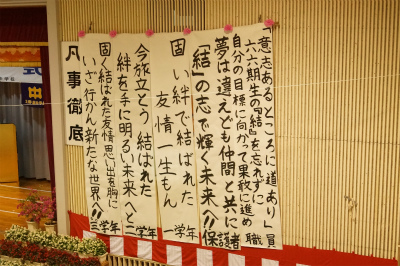 「意志あるところに道あり」
六六期生の『結』を忘れずに
自分の目標に向かって果敢に進め
職員
夢は違えども仲間と共に
「結」の志で輝く未来へ!!
保護者
固い絆で結ばれた
友情一生もん
一学年
今旅立とう 結ばれた
絆を手に明るい未来へと
二学年
固く結ばれた友情思い出を胸に
いざ行かん新たな世界へ!!
三学年
凡事徹底